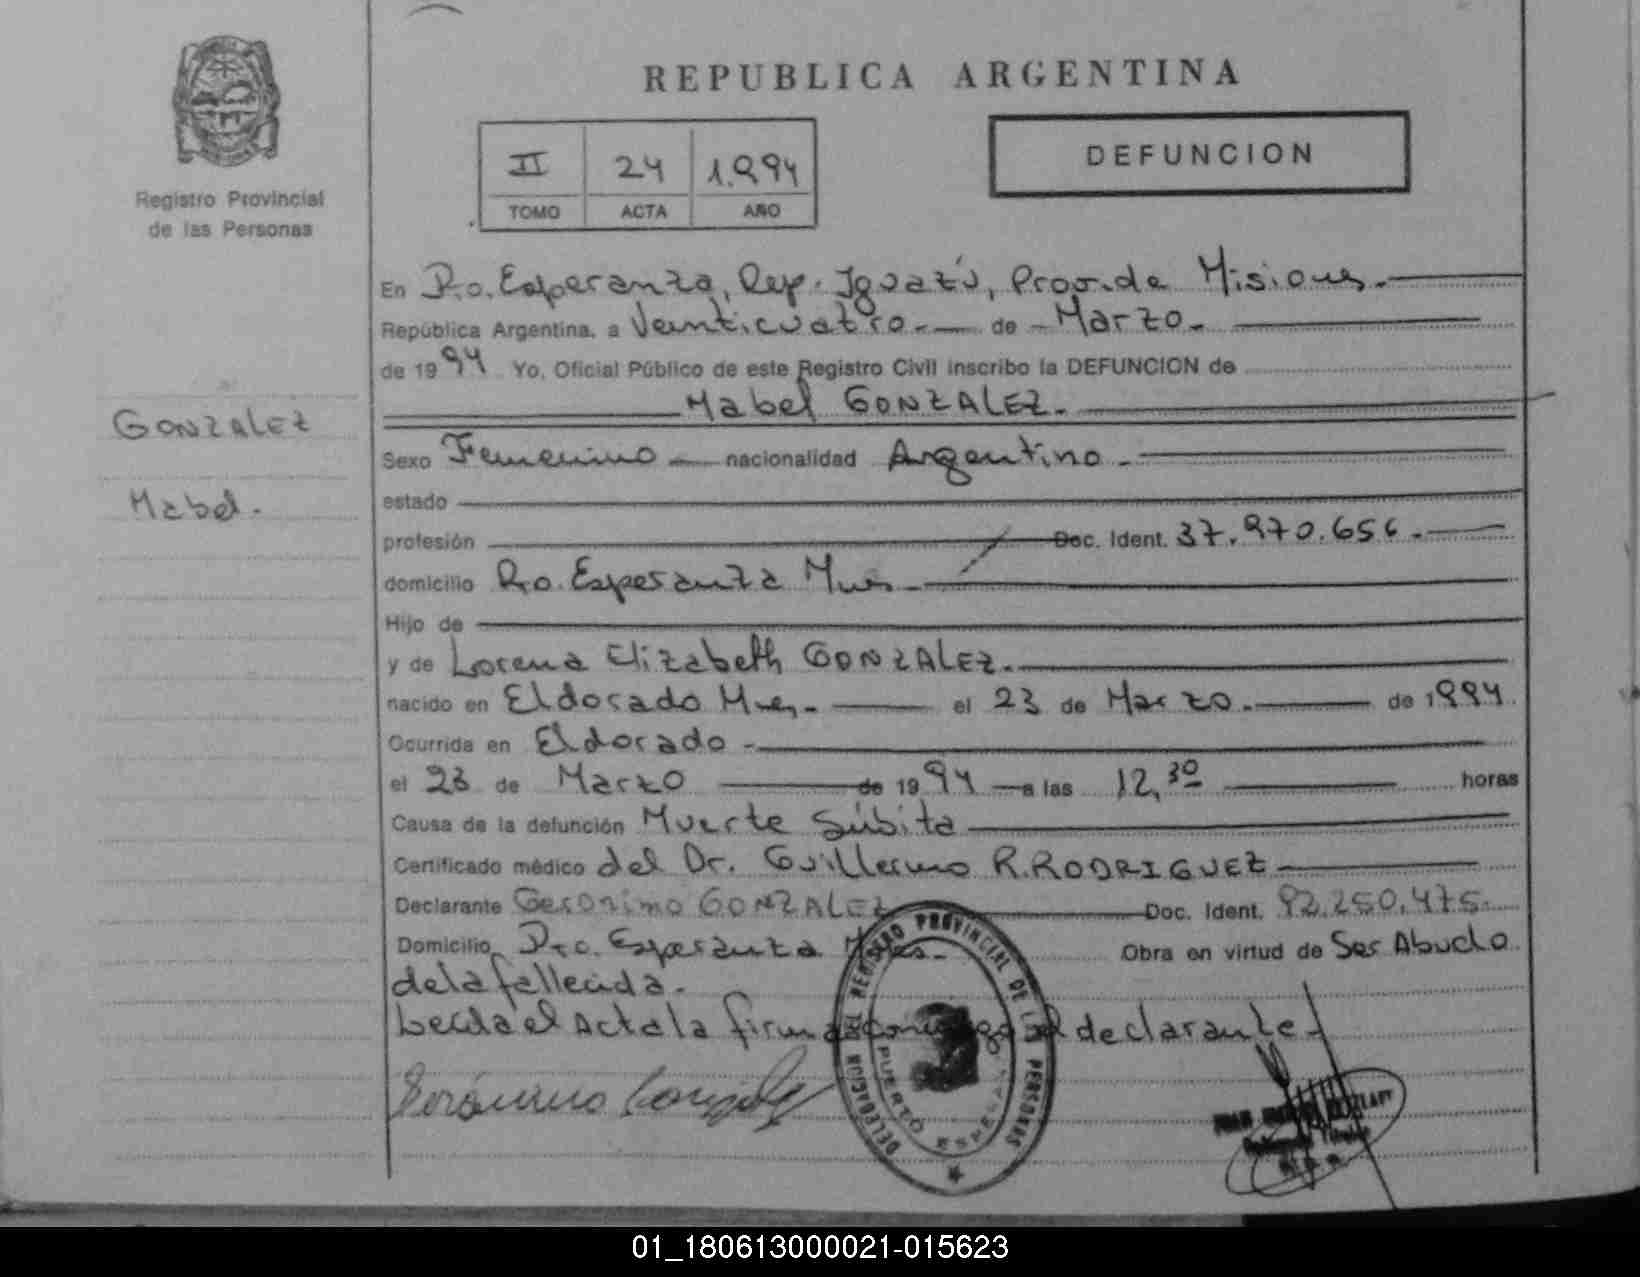 REPUBLICA ARGENTINA
Registro Provincial
de las Personas
II 24 1.994
TOMO ACTA AÑO
DEFUNCION
GONZALEZ
Mabel.
En Pto. Esperanza, Dep. Iguazú, Prov. de Misiones.-
República Argentina, a Veinticuatro.- de - Marzo.-
de 1994 Yo, Oficial Público de este Registro Civil inscribo la DEFUNCION de
Mabel GONZALEZ.-
Sexo Femenino - nacionalidad Argentina.-
estado
profesión Doc. Ident. 37.970.656.-
domicilio Pto. Esperanza Mnes.-
Hijo de
y de Lorena Elizabeth GONZALEZ.-
nacido en Eldorado Mnes.- el 23 de Marzo.- de 1994
Ocurrida en Eldorado.-
el 23 de Marzo de 1994 a las 12,30 horas
Causa de la defunción Muerte Súbita
Certificado médico del Dr. Guillermo R. RODRIGUEZ
Declarante Gerónimo GONZALEZ Doc. Ident. 92.250.475.
Domicilio Pto. Esperanza Mnes.- Obra en virtud de Ser Abuelo
de la fallecida.
Leida el Acta la firma conmigo el declarante.-
Gerónimo Gonzalez
DELEGACION DEL REGISTRO PROVINCIAL DE LAS PERSONAS
PUERTO ESPERANZA
01_180613000021-015623